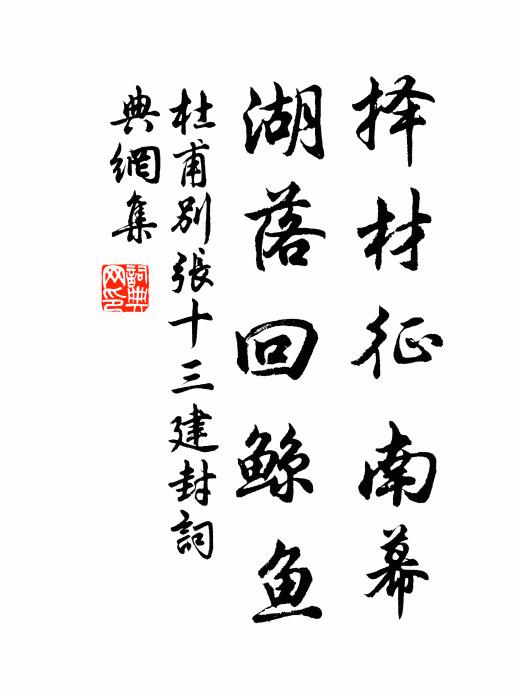 择材征南幕
湖落回鲸鱼
杜甫别張十三建封詞
典網集
詞典
网印